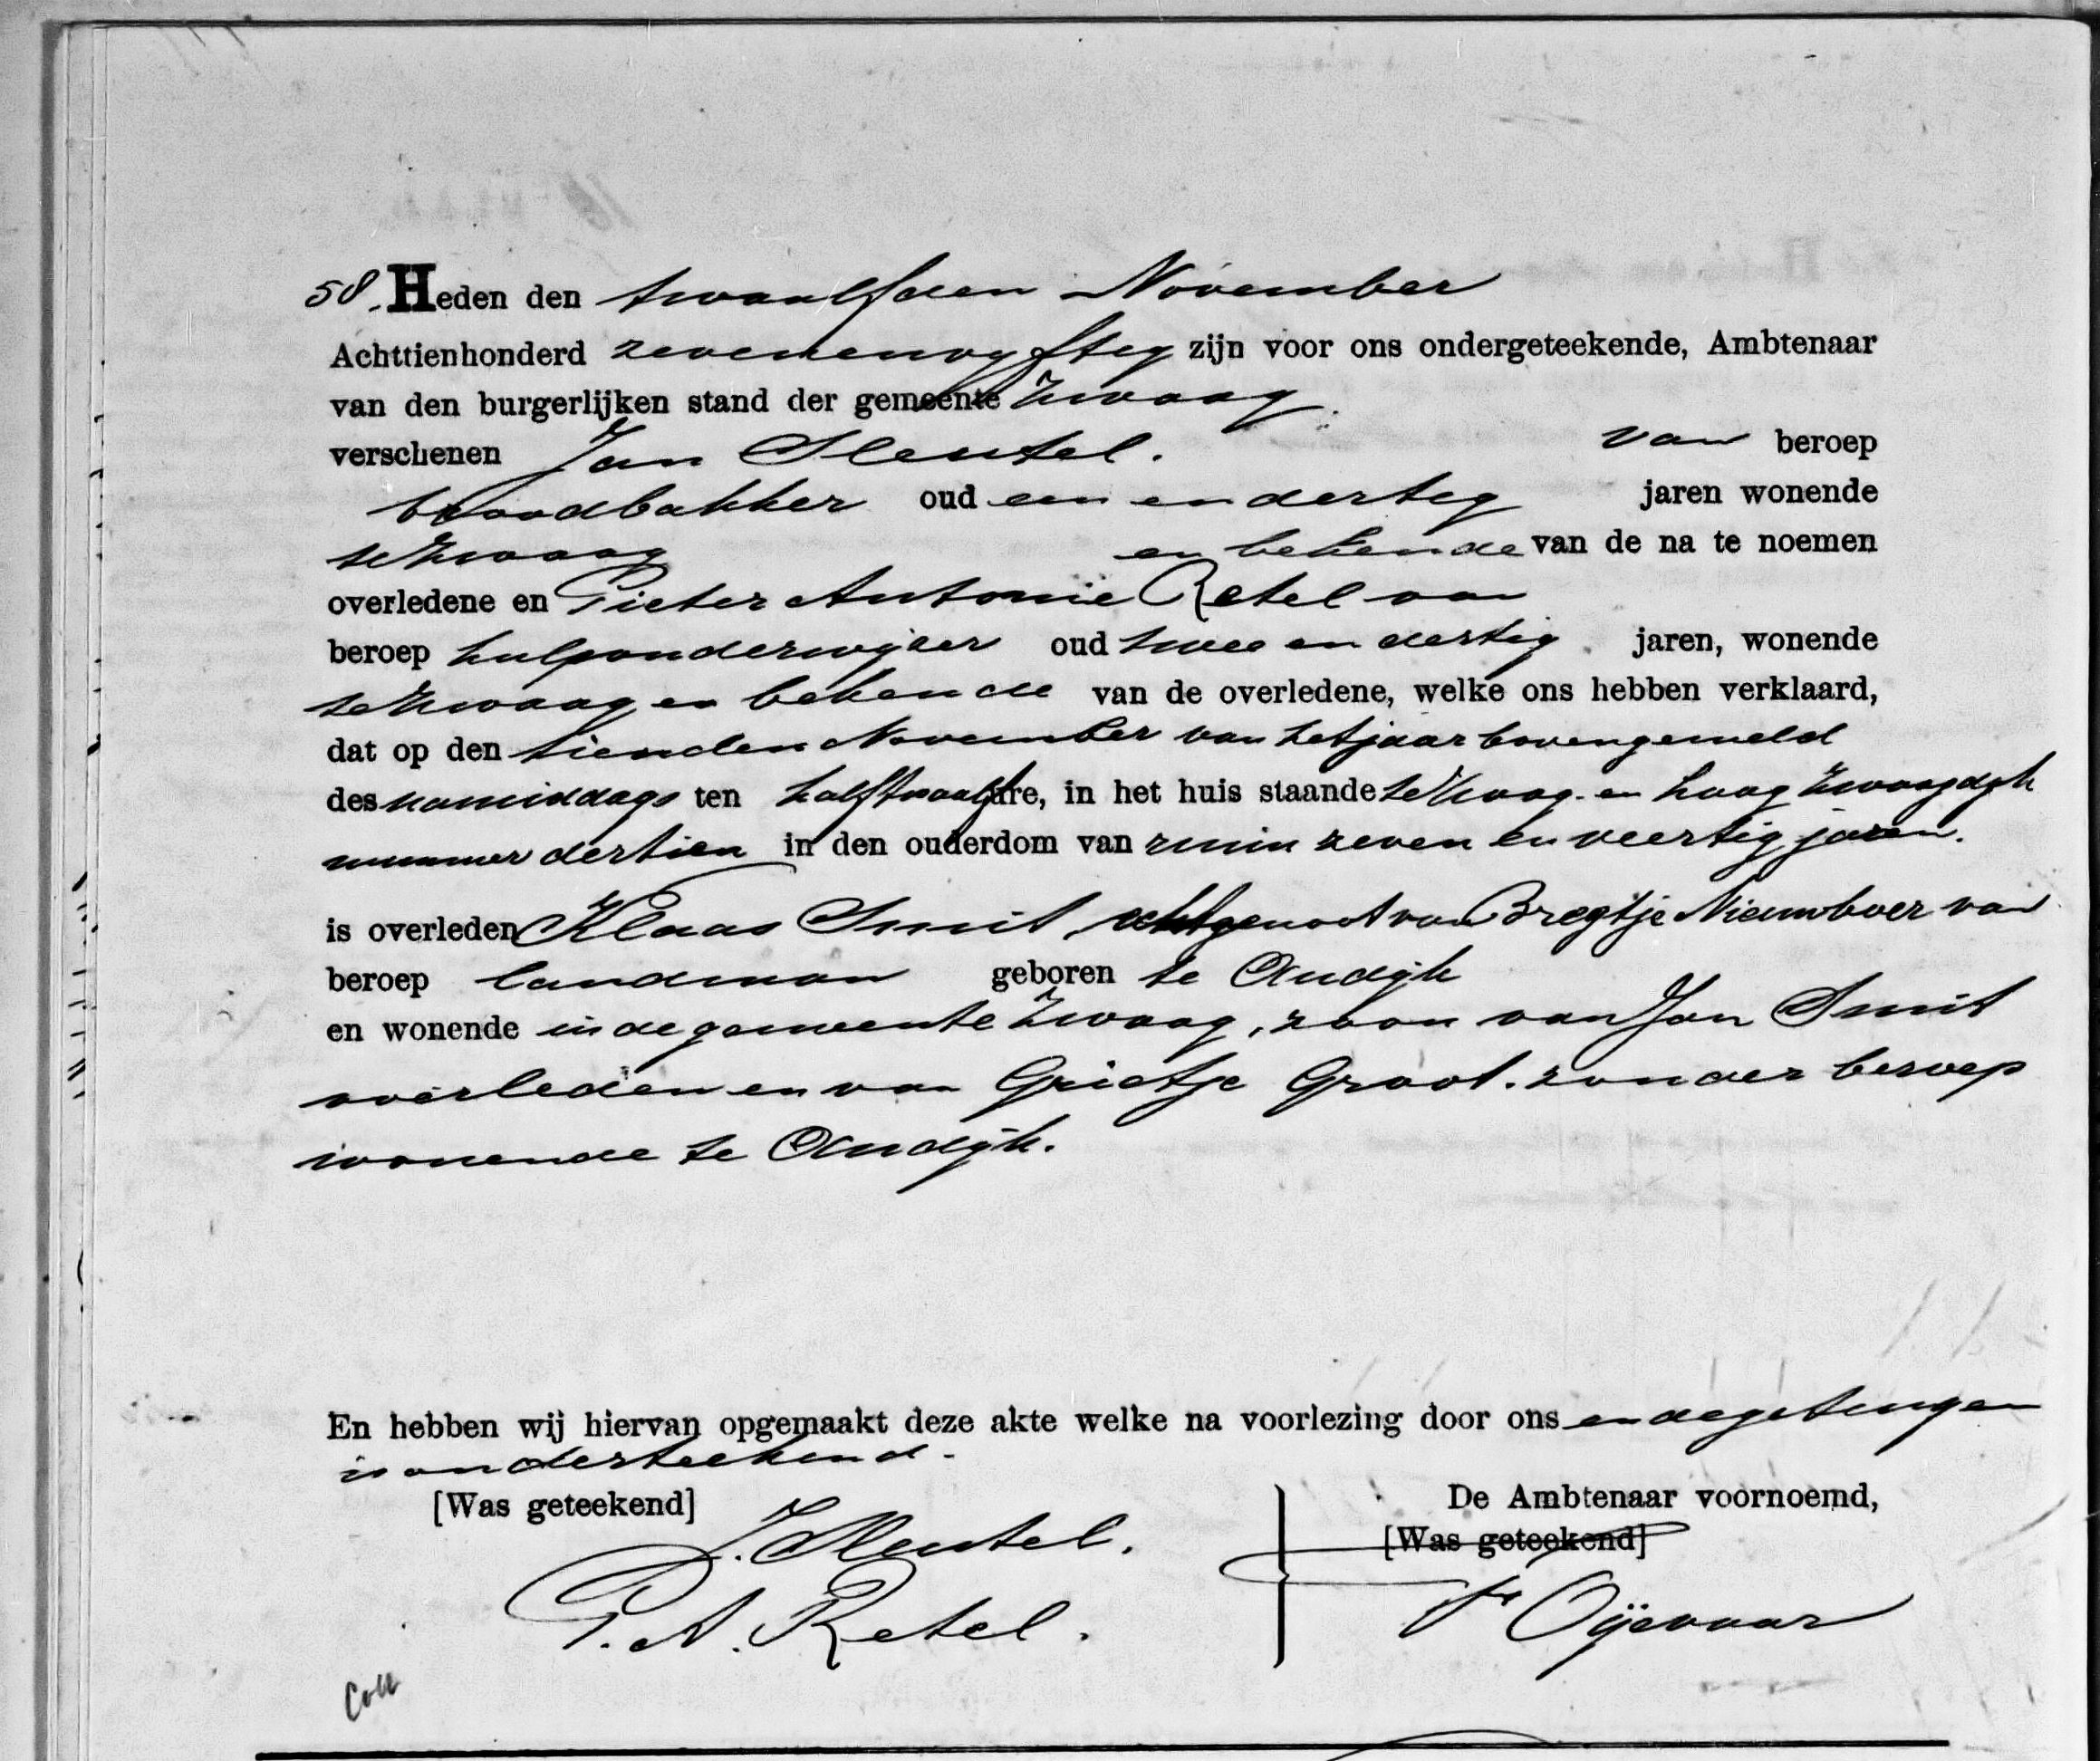 58. Heden den twaalfden November
Achttienhonderd zevenenvyftig zijn voor ons ondergeteekende, Ambtenaar
van den burgerlijken stand der gemeente Zwaag
verschenen Jan Sleutel. van beroep
broodbakker oud een en dertig jaren wonende
te Zwaag en bekende van de na te noemen
overledene en Pieter Antonie Retel van
beroep hulponderwyzer oud twee en dertig jaren, wonende
te Zwaag en bekende van de overledene, welke ons hebben verklaard,
dat op den tienden November van het jaar bovengemeld
des namiddags ten half twaalf ure, in het huis staande te Zwaag en hoog Zwaagdyk
nummer dertien in den ouderdom van ruim zeven en veertig jaren.
is overleden Klaas Smit, echtgenoot van Bregtje Nieuwboer van
beroep landman geboren te Andyk
en wonende in de gemeente Zwaag, zoon van Jan Smit
overleden en van Grietje Groot. zonder beroep
wonende te Andyk.
En hebben wij hiervan opgemaakt deze akte welke na voorlezing door ons en de getuigen
is onderteekend.
[Was geteekend] De Ambtenaar voornoemd,
J. Sleutel. [Was geteekend]
P. A. Retel. Oÿevaar